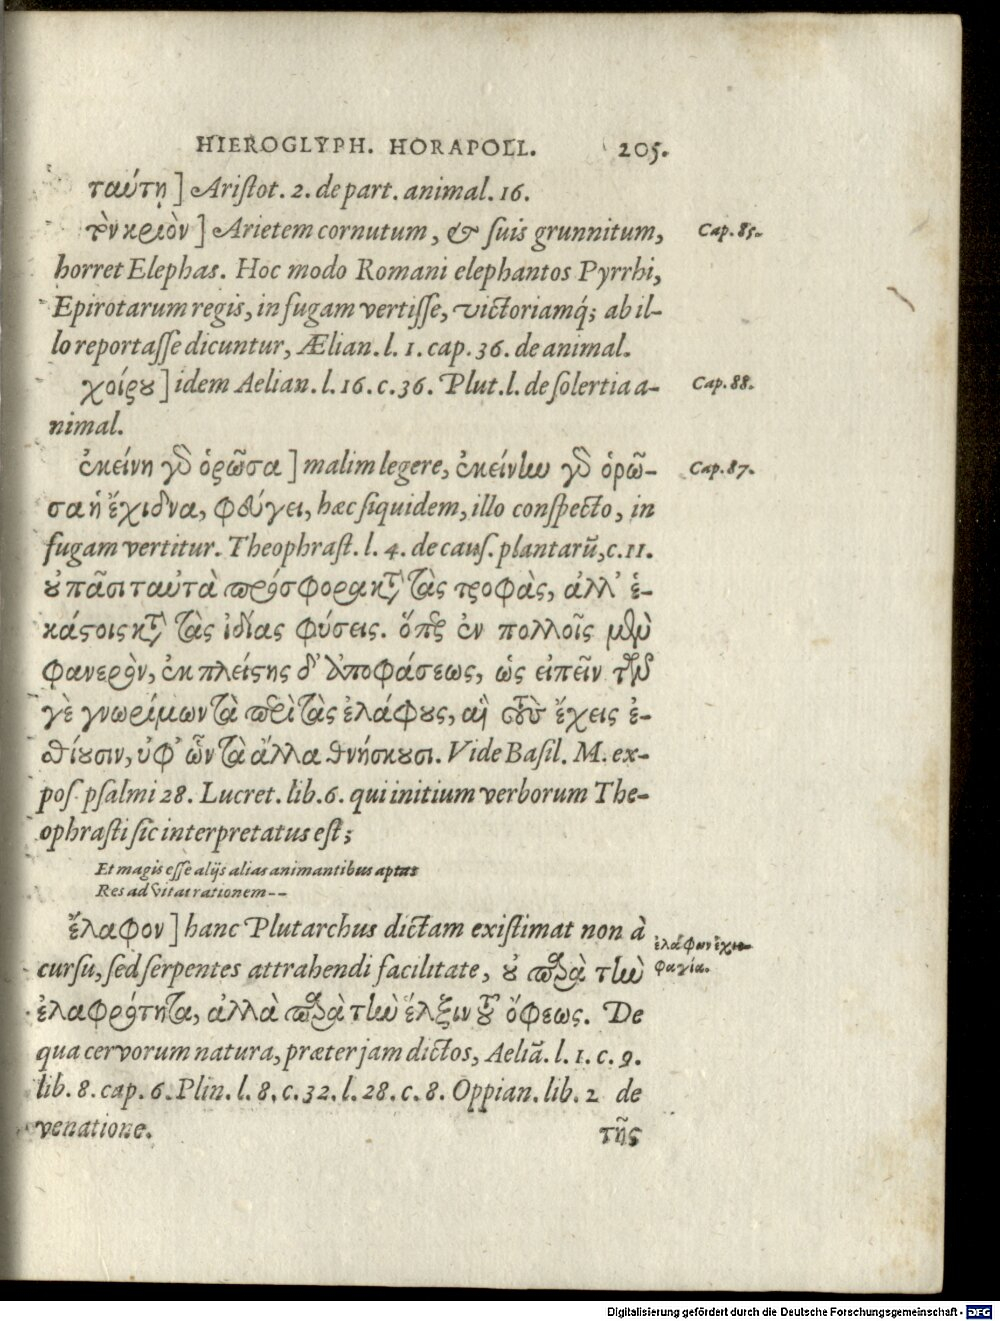 HIEROGLYPH. HORAPOLL. 205.
ταύτῃ] Aristot. 2. de part. animal. 16.
τὸν κριὸν] Arietem cornutum, & suis grunnitum, Cap. 85.
horret Elephas. Hoc modo Romani elephantos Pyrrhi,
Epirotarum regis, in fugam vertisse, victoriamq́; ab il-
lo reportasse dicuntur, Ælian. l. 1. cap. 36. de animal.
χοίρȣ] idem Aelian. l. 16. c. 36. Plut. l. de solertia a- Cap. 88.
nimal.
ἐκείνη γὸ ὁρῶσα] malim legere, ἐκείνην γὸ ὁρῶ- Cap. 87.
σα ἡ ἔχιδνα, φεύγει, hæc siquidem, illo conspecto, in
fugam vertitur. Theophrast. l. 4. de caus. plantarũ, c. 11.
ȣ πᾶσι ταὐτὰ πρόσφορα κτ̀ τὰς τροφὰς, ἀλλ' ἑ-
κάστοις κτ̀ τὰς ἰδίας φύσεις. ὅπερ ἐν πολλοῖς μὲν
φανερὸν, ἐκ πλείστης δ' ἀποφάσεως, ὡς εἰπεῖν τῶν
γὲ γνωρίμων τὰ περὶ τὰς ἐλάφȣς, αἳ τοὺς ἔχεις ἐ-
σθίȣσιν, ὑφ' ὧν τὰ ἄλλα θνήσκȣσι. Vide Basil. M. ex-
pos. psalmi 28. Lucret. lib. 6. qui initium verborum The-
ophrasti sic interpretatus est;
Et magis esse alijs alias animantibus aptas
Res ad vitai rationem--
ἔλαφον] hanc Plutarchus dictam existimat non à ἐλάφων ἐχιο-
cursu, sed serpentes attrahendi facilitate, ȣ παρὰ τὴν φαγία.
ἐλαφρότητα, ἀλλὰ παρὰ τὴν ἕλξιν τȣ ὄφεως. De
qua cervorum natura, præter jam dictos, Aeliã. l. 1. c. 9.
lib. 8. cap. 6. Plin. l. 8. c. 32. l. 28. c. 8. Oppian. lib. 2 de
venatione. τῆς
Digitalisierung gefördert durch die Deutsche Forschungsgemeinschaft - DFG